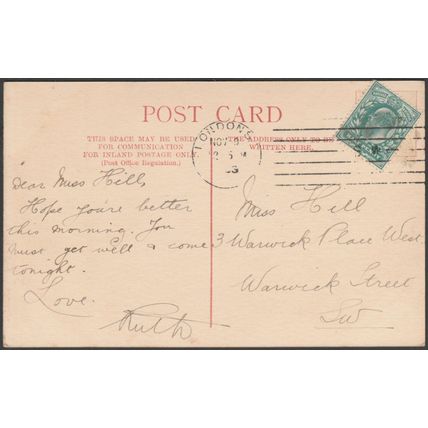 POST CARD
THIS SPACE MAY BE USED
FOR COMMUNICATION
FOR INLAND POSTAGE ONLY
(Post Office Regulation.)
THE ADDRESS ONLY TO BE
WRITTEN HERE.
LONDON S
NOV
Dear Miss Hills
Hope you're better
this morning. You
must get well & come
tonight.
Love.
Ruth
Miss Hill
3 Warwick Place West.
Warwick Street
SW